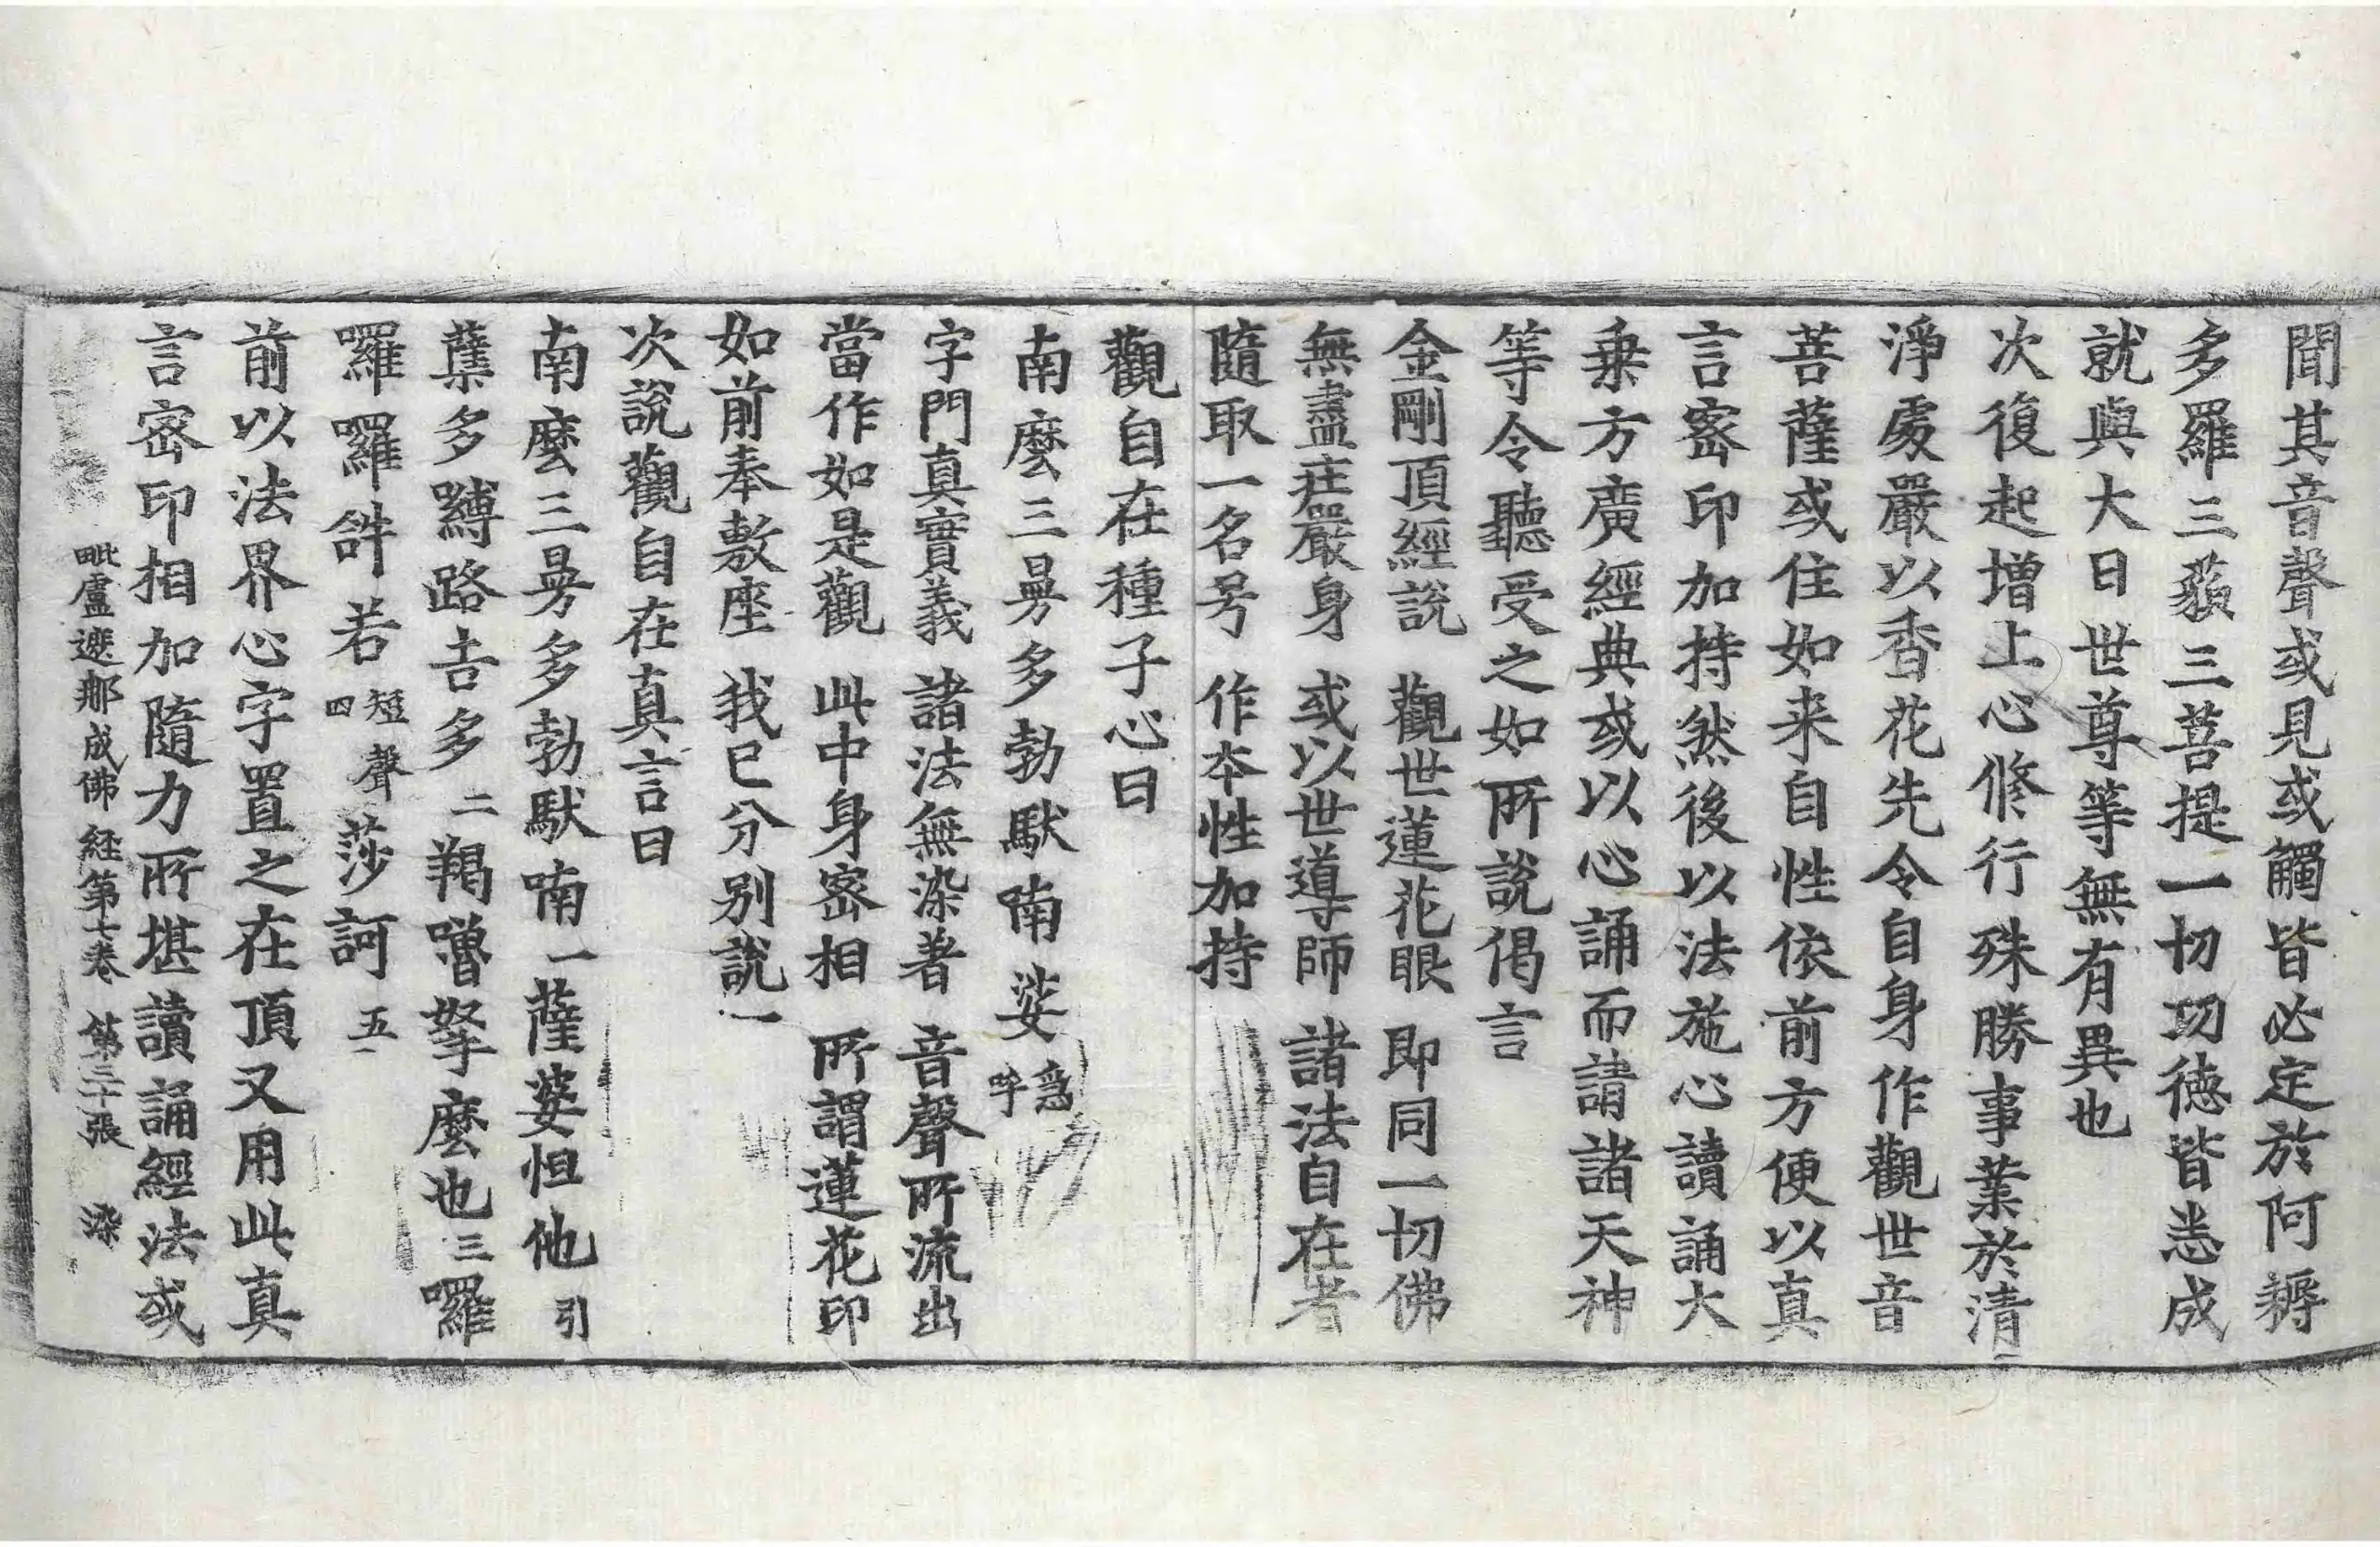 聞其音聲或見或觸皆必定於阿耨
多羅三藐三菩提一切功德皆悉成
就與大日世尊等無有異也
次復起增上心修行殊勝事業於清
淨處嚴以香花先令自身作觀世音
菩薩或住如来自性依前方便以真
言密印加持然後以法施心讀誦大
乗方廣經典或以心誦而請諸天神
等令聽受之如所說偈言
金剛頂經說 觀世蓮花眼 即同一切佛
無盡庄嚴身 或以世導師 諸法自在者
隨取一名号 作夲性加持
觀自在種子心曰
南麼三曼多勃馱喃娑急呼
字門真實義 諸法無染著 音聲所流出
當作如是觀 此中身密相 所謂蓮花印
如前奉敷座 我已分别說一
次說觀自在真言曰
南麼三曼多勃馱喃一薩婆怛他引
蘖多嚩路吉多二羯嚕拏麼也三囉
囉囉𤙖若短聲四莎訶五
前以法界心字置之在頂又用此真
言密印相加隨力所堪讀誦經法或
毗盧遮那成佛経第七卷 第三十張 染